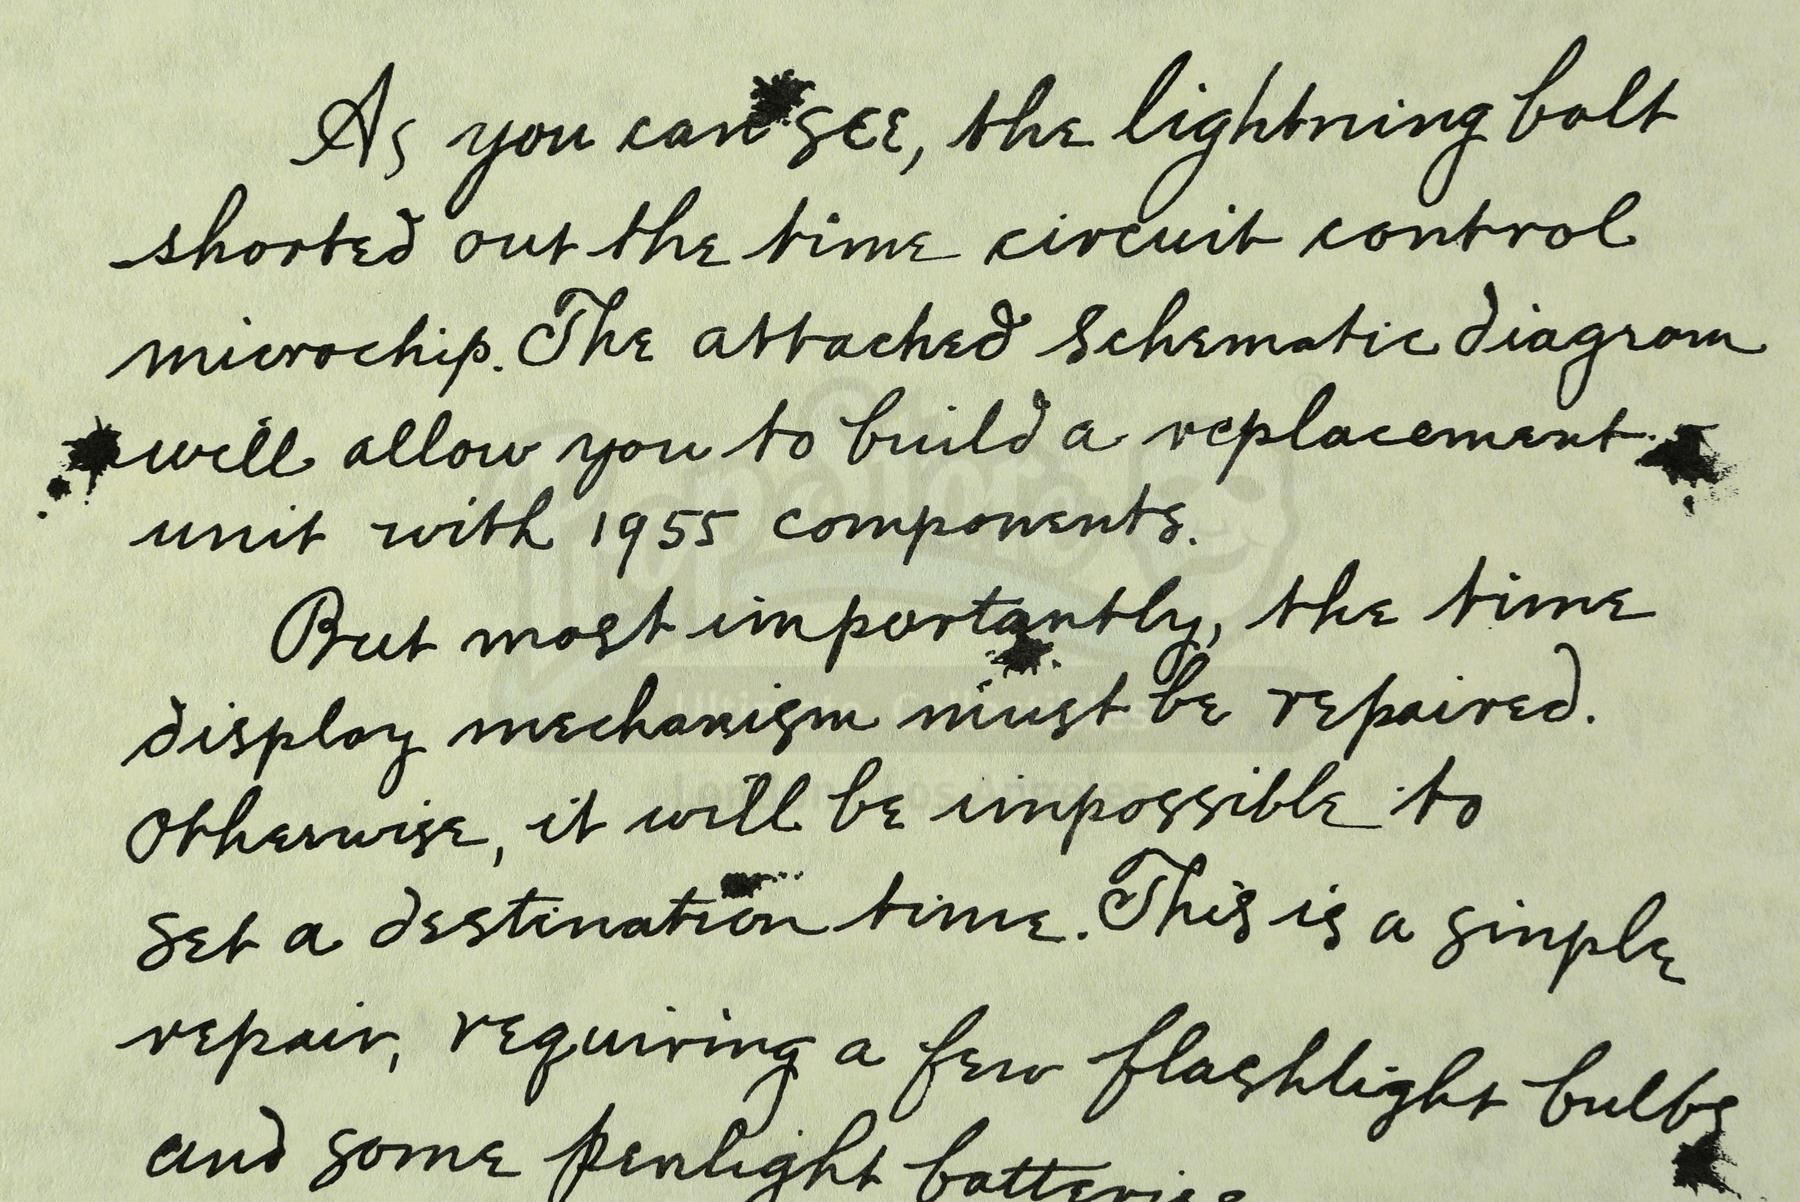 As you can see, the lightning bolt
shorted out the time circuit control
microchip. The attached schematic diagram
will allow you to build a replacement
unit with 1955 components.
But most importantly, the time
display mechanism must be repaired.
Otherwise, it will be impossible to
set a destination time. This is a simple
repair, requiring a few flashlight bulbs
and some penlight batteries